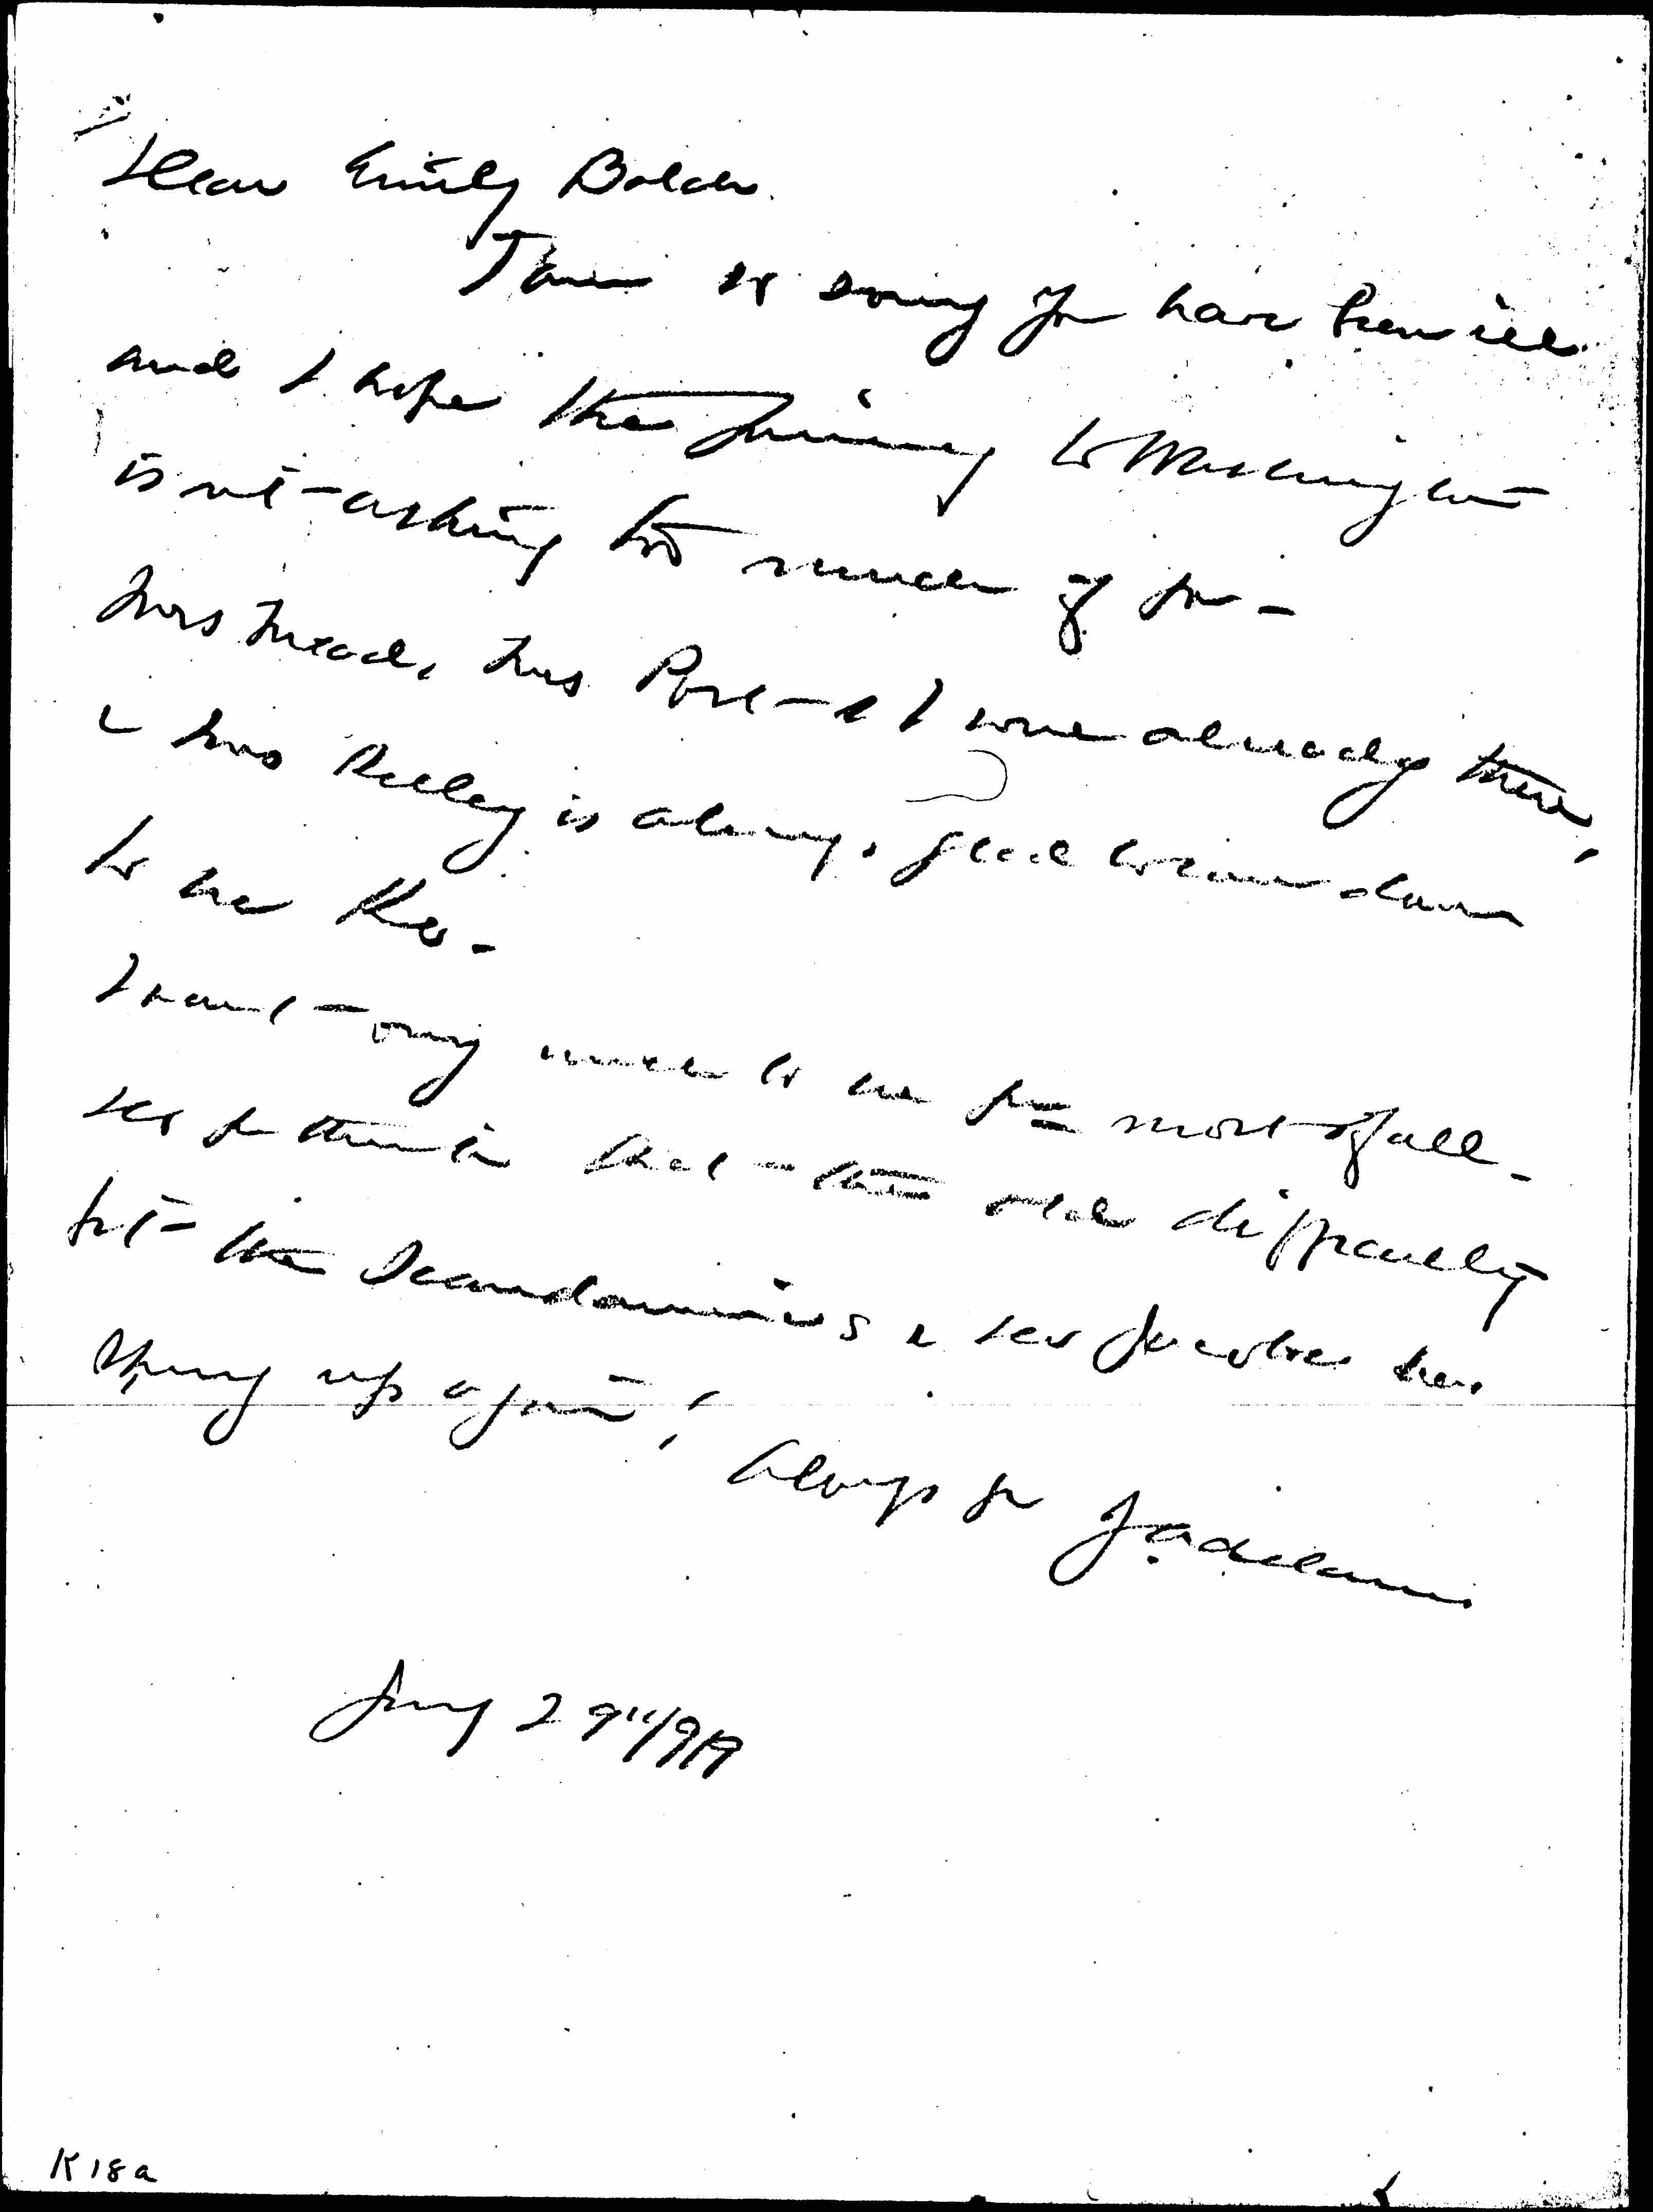 Dear Emily Balch.
I am so sorry you have been ill
and I hope the journey to Washington
is not asking too much of you –
Mrs Mead, Mrs Post & I were already there,
& Mrs Kelley is always glad to come down
to the
I want very much to see you most of all –
you think that the old difficulty
the Scandinavians & has
sprung up again!
Always yr J. Addams.
29" 1919
K18a